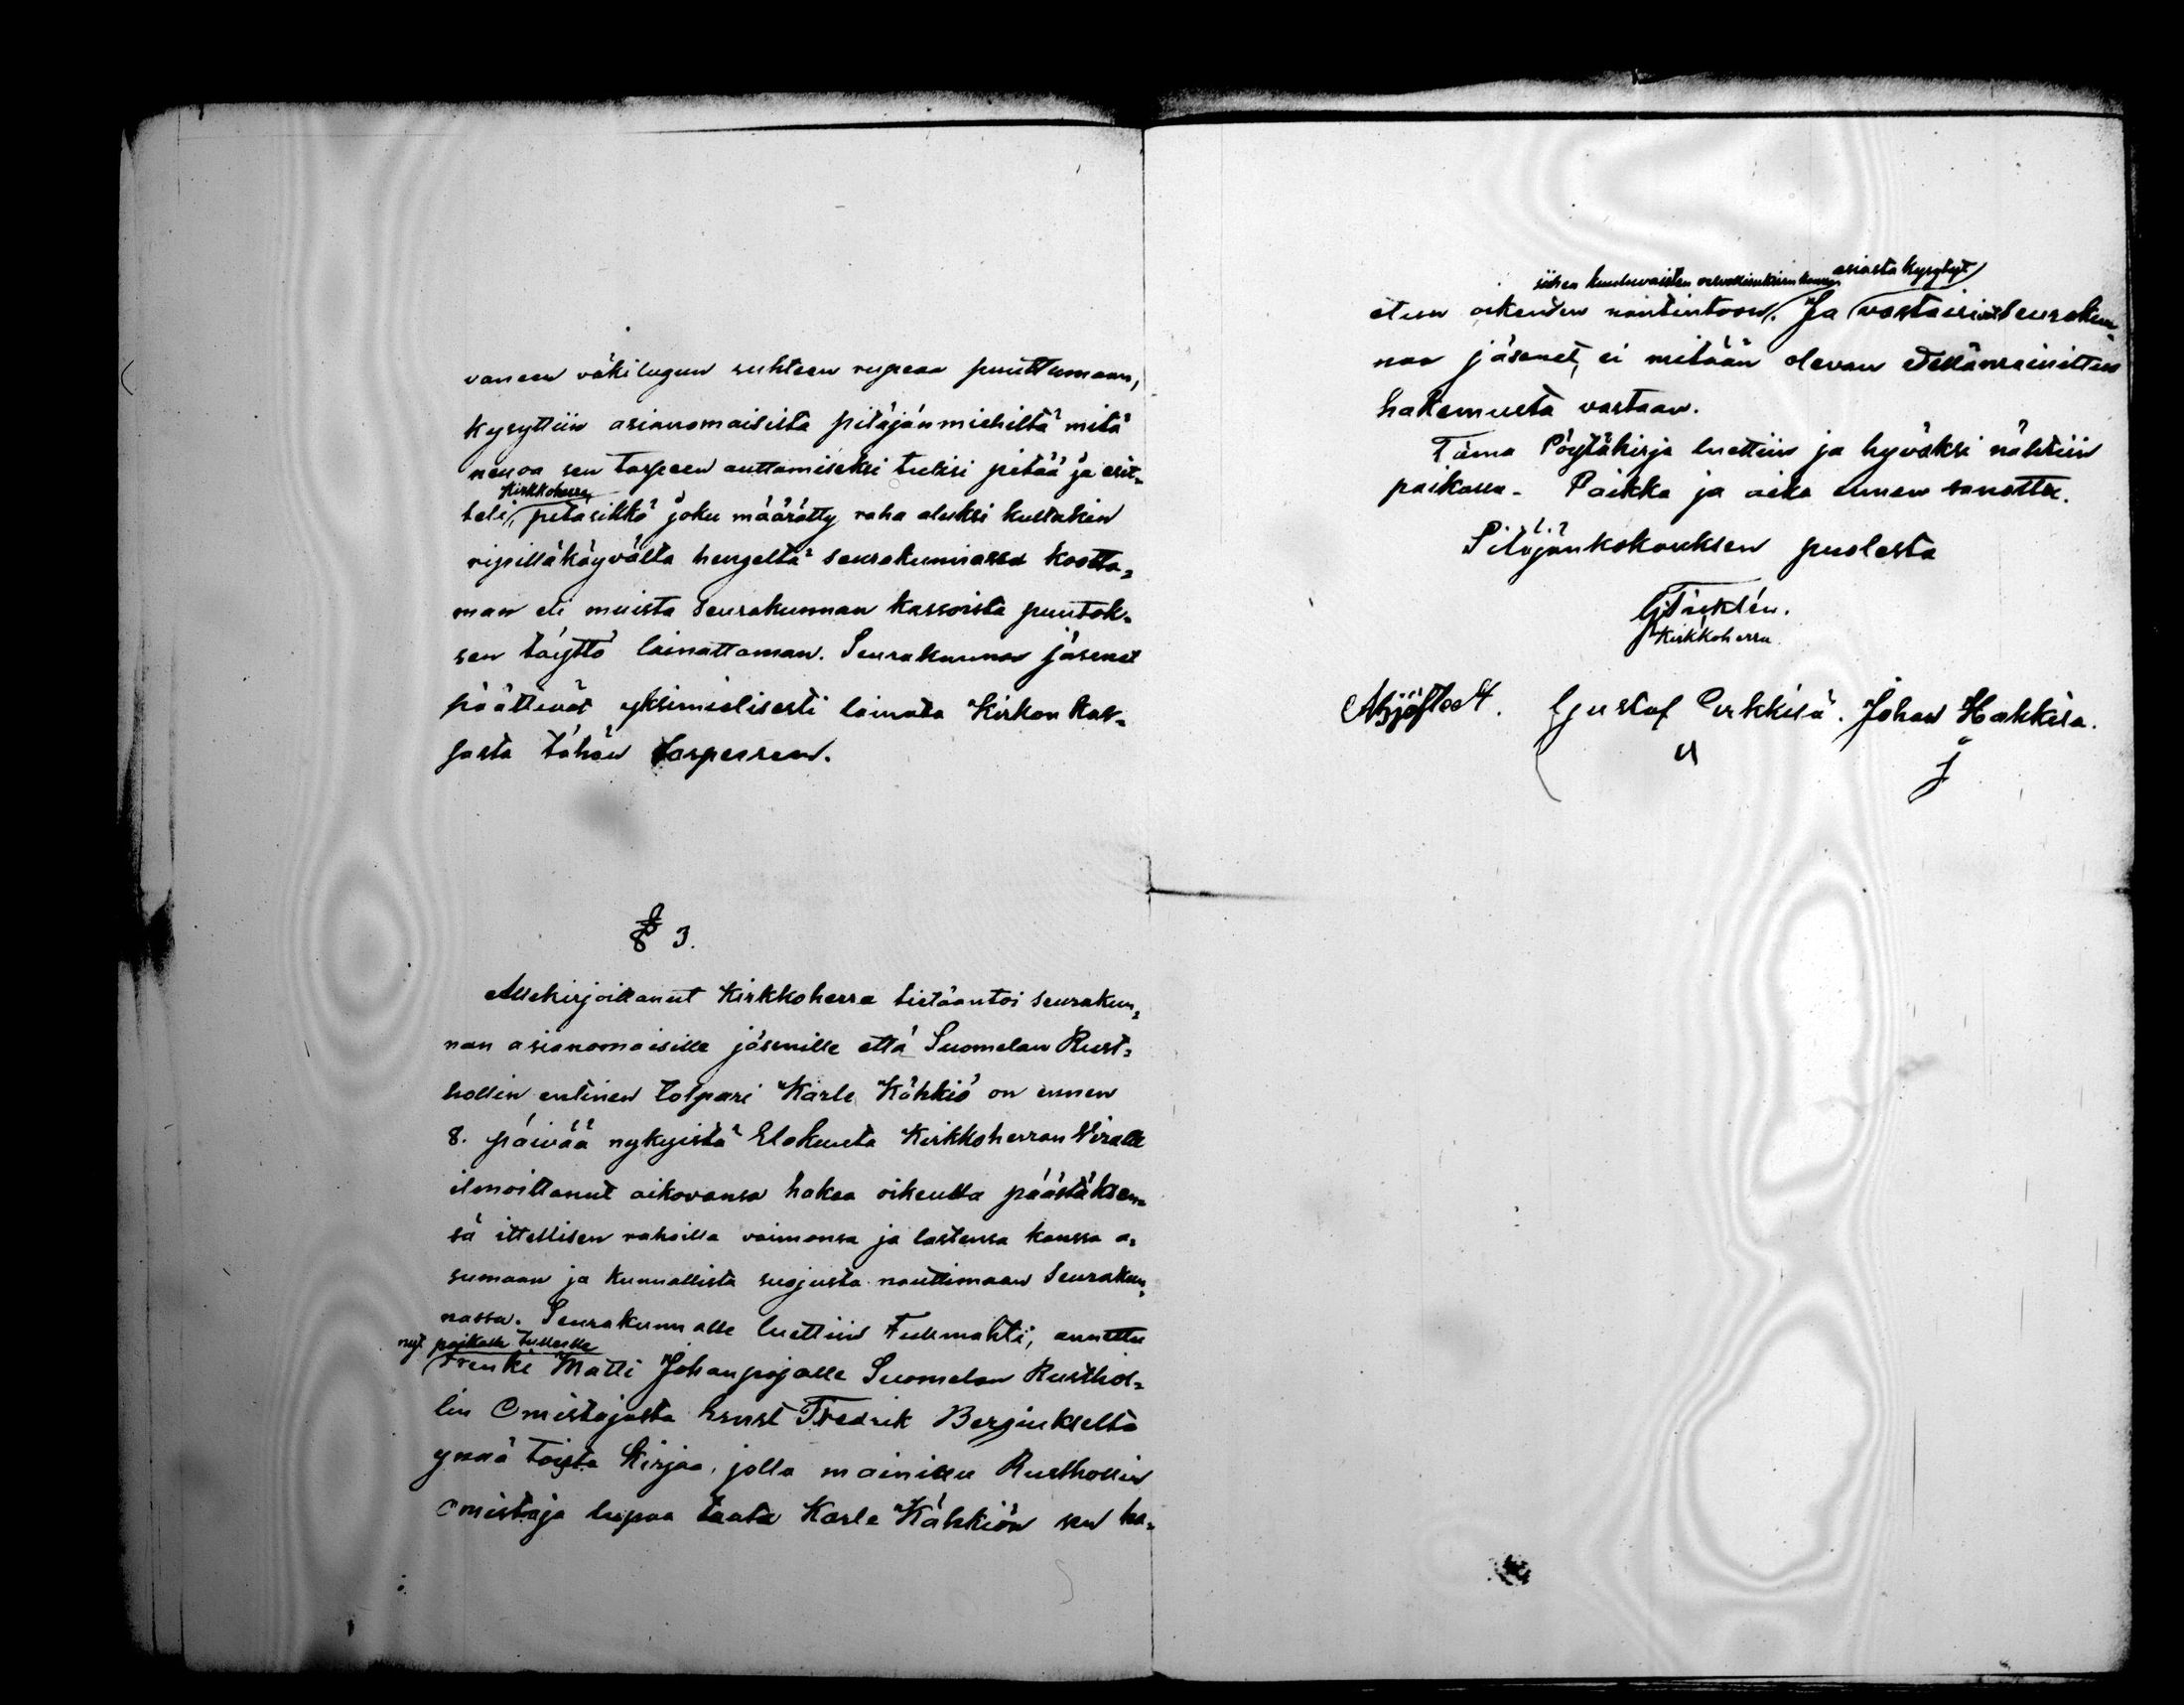 vaneen väkilugun suhteen rupeaa puuttumaan,
kysyttiin asianomaisilta pitäjänmiehiltä mitä
neuvoa sen tarpeen auttamiseksi tulisi pitää ja esit-
Kirkkoherra
teli, pitäsikkö joku määrätty raha aluksi kultakin
ripilläkäyvältä hengeltä seurakunnassa kootta-
man eli muista Seurakunnan kassoista puutok-
sen täyttö lainattaman. Seurakunnan jäsenet
päättivät yksimielisesti lainata Kirkon kas-
sasta tähän tarpeesen.
§ 3.
Allekirjoittanut Kirkkoherra tietääntoi seurakun-
nan asianomaisille jäsenille että Suomelan Rust-
hollin entinen tolpari Karle Kähkiö on ennen
8. päivää nykyistä Elokuuta Kirkkoherran Viralle
ilmoittanut aikovansa hakea oikeutta päästäksen-
sä ittellisen rahoilla vaimonsa ja lastensa kanssa a-
sumaan ja kunnallista suojusta nauttimaan Seurakun-
nassa. Seurakunnalle luettiin Fullmahti, annettu
nyt paikalle tulleelle
Trenki Matti Johanpojalle Suomelan Rusthol-
lin Omistajasta Ernst Fredrik Bergiukselta
ynnä toista Kirjaa, jolla mainittu Rusthollin
Omistaja lupaa taata Karle Kähkiön sen ha-
siihen kuuluvaisten asiasta kysytyt
etun oikeuden nautintoon. Ja vastaisivat Seurakun-
nan jäsenet, ei mitään olevan edellämainittua
hakemusta vastaan.
Tämä Pöytäkirja luettiin ja hyväksi nähtiin
paikassa. Paikka ja aika ennen sanottu.
Pitäjänkokouksen puolesta
Kirkkoherra
Gustaf Johan Hakkila.